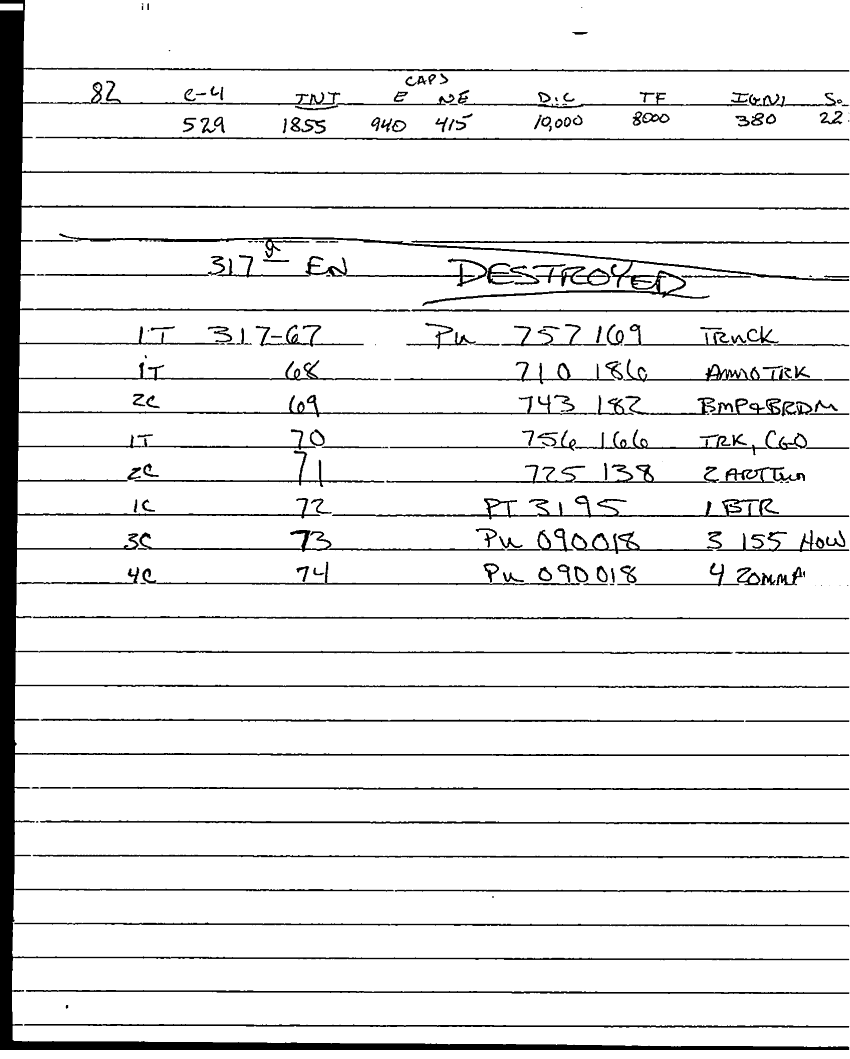 CAPS
82 C-4 TNT E NE D.C TF IGNI So
529 1855 940 415 10,000 8000 380 22
317th EN DESTROYED
1T 317-67 Pu 757 169 TRUCK
1T 68 710 186 AMMO TRK
2C 69 743 182 BMP+BRDM
1T 70 756 166 TRK, CGO
2C 71 725 138 2 ART
1C 72 PT 3195 1 BTR
3C 73 Pu 090018 3 155 HOW
4C 74 Pu 090018 4 20MMA